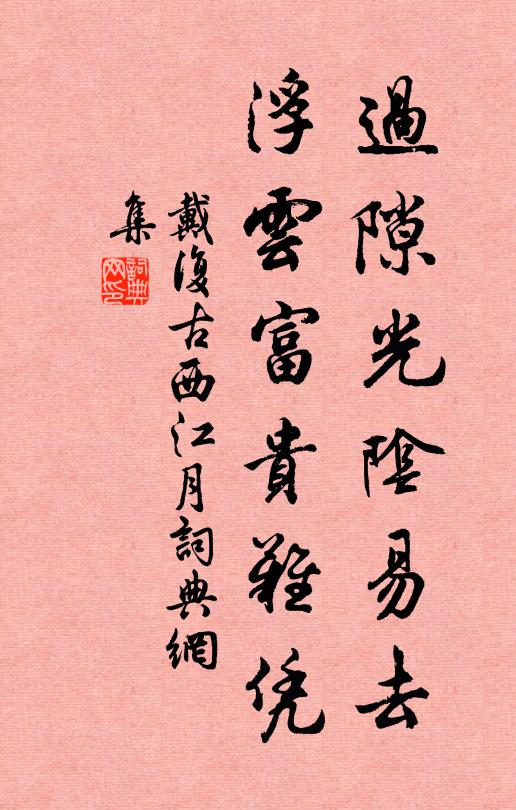 過隙光陰易去
浮雲富貴難凭
戴復古西江月詞典網
集
詞典
网印